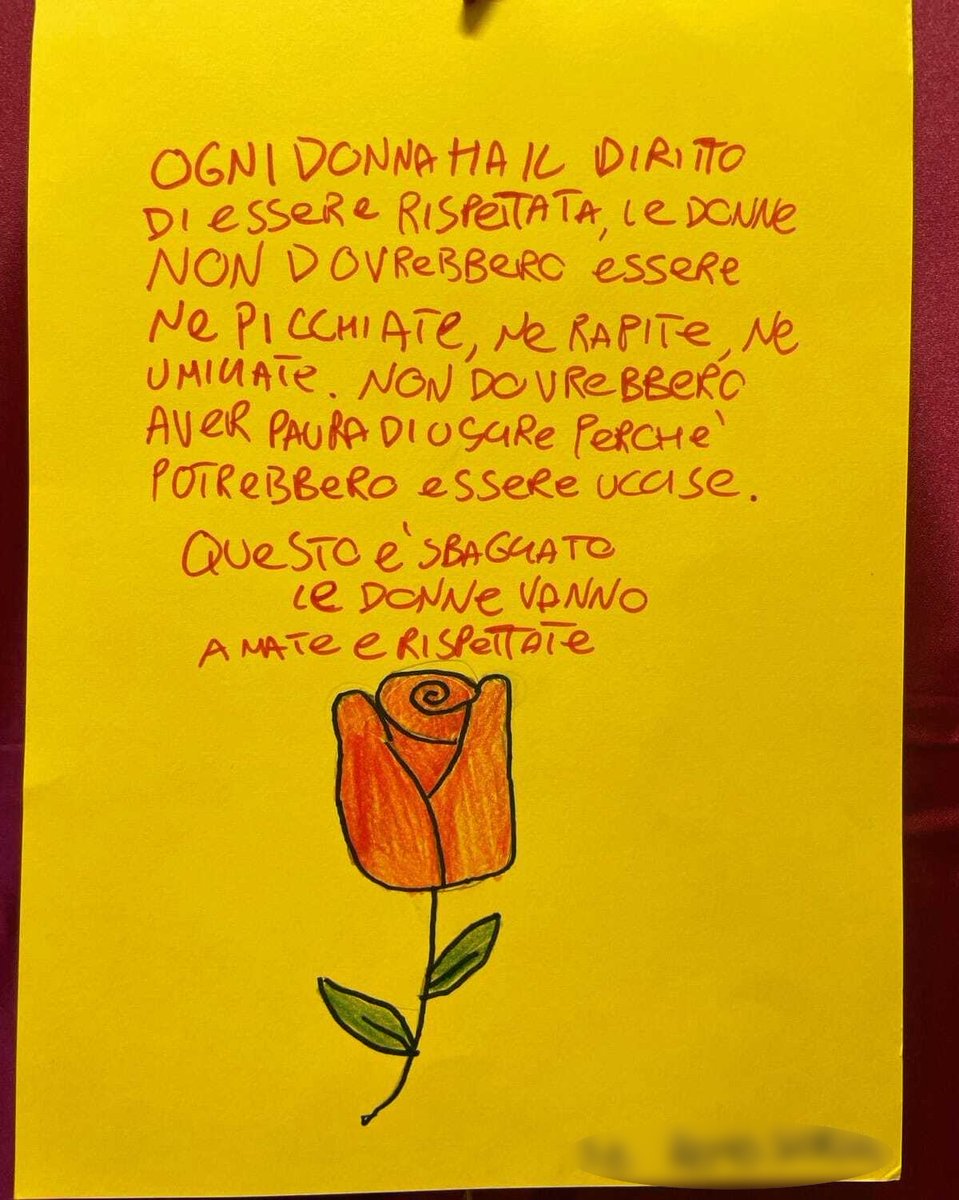 OGNI DONNA HA IL DIRITTO
DI ESSERE RISPETTATA, LE DONNE
NON DOVREBBERO ESSERE
NE PICCHIATE, NE RAPITE, NE
UMILIATE. NON DOVREBBERO
AVER PAURA DI USCIRE PERCHE'
POTREBBERO ESSERE UCCISE.
QUESTO E' SBAGLIATO
LE DONNE VANNO
AMATE E RISPETTATE